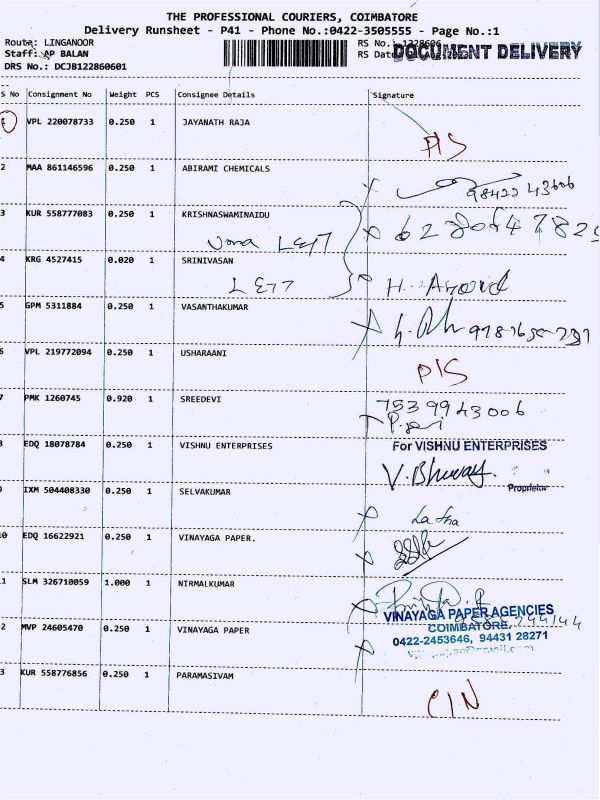 THE PROFESSIONAL COURIERS, COIMBATORE
Delivery Runsheet - P41 - Phone No.:0422-3505555 - Page No.:1
Route: LINGANOOR
RS No.: 1228606
Staff: AP BALAN
RS Date
DOCUMENT DELIVERY
DRS No.: DCJB122860601
S No Consignment No Weight PCS Consignee Details Signature
1 VPL 220078733 0.250 1 JAYANATH RAJA
P/S
2 MAA 861146596 0.250 1 ABIRAMI CHEMICALS
98422 43606
3 KUR 558777083 0.250 1 KRISHNASWAMINAIDU
LEFT
4 KRG 4527415 0.020 1 SRINIVASAN
LEFT
H. Anand
5 GPM 5311884 0.250 1 VASANTHAKUMAR
6 VPL 219772094 0.250 1 USHARAANI
P/S
7 PMK 1260745 0.920 1 SREEDEVI
7539943006
8 EDQ 18078784 0.250 1 VISHNU ENTERPRISES
For VISHNU ENTERPRISES
V. Bhuvan
Proprietor
9 IXM 504408330 0.250 1 SELVAKUMAR
Latha
10 EDQ 16622921 0.250 1 VINAYAGA PAPER.
11 SLM 326710059 1.000 1 NIRMALKUMAR
VINAYAGA PAPER AGENCIES
COIMBATORE.
0422-2453646, 94431 28271
2 MVP 24605470 0.250 1 VINAYAGA PAPER
3 KUR 558776856 0.250 1 PARAMASIVAM
C/N